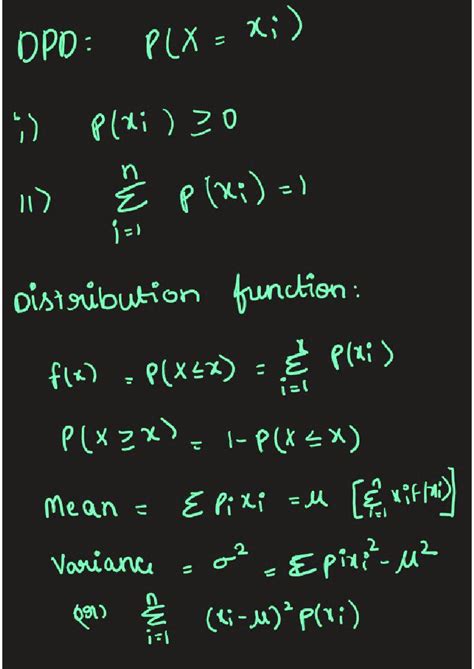 DPD: P(X = xi)
i) P(xi) ≥ 0
ii) n Σ i=1 P(xi) = 1
Distribution function:
f(x) = P(X ≤ x) = x Σ i=1 P(xi)
P(X ≥ x) = 1 - P(X ≤ x)
Mean = Σ Pi xi = μ [n Σ i=1 xi f(xi)]
Variance = σ² = Σ pi xi² - μ²
(or) n Σ i=1 (xi - μ)² P(xi)